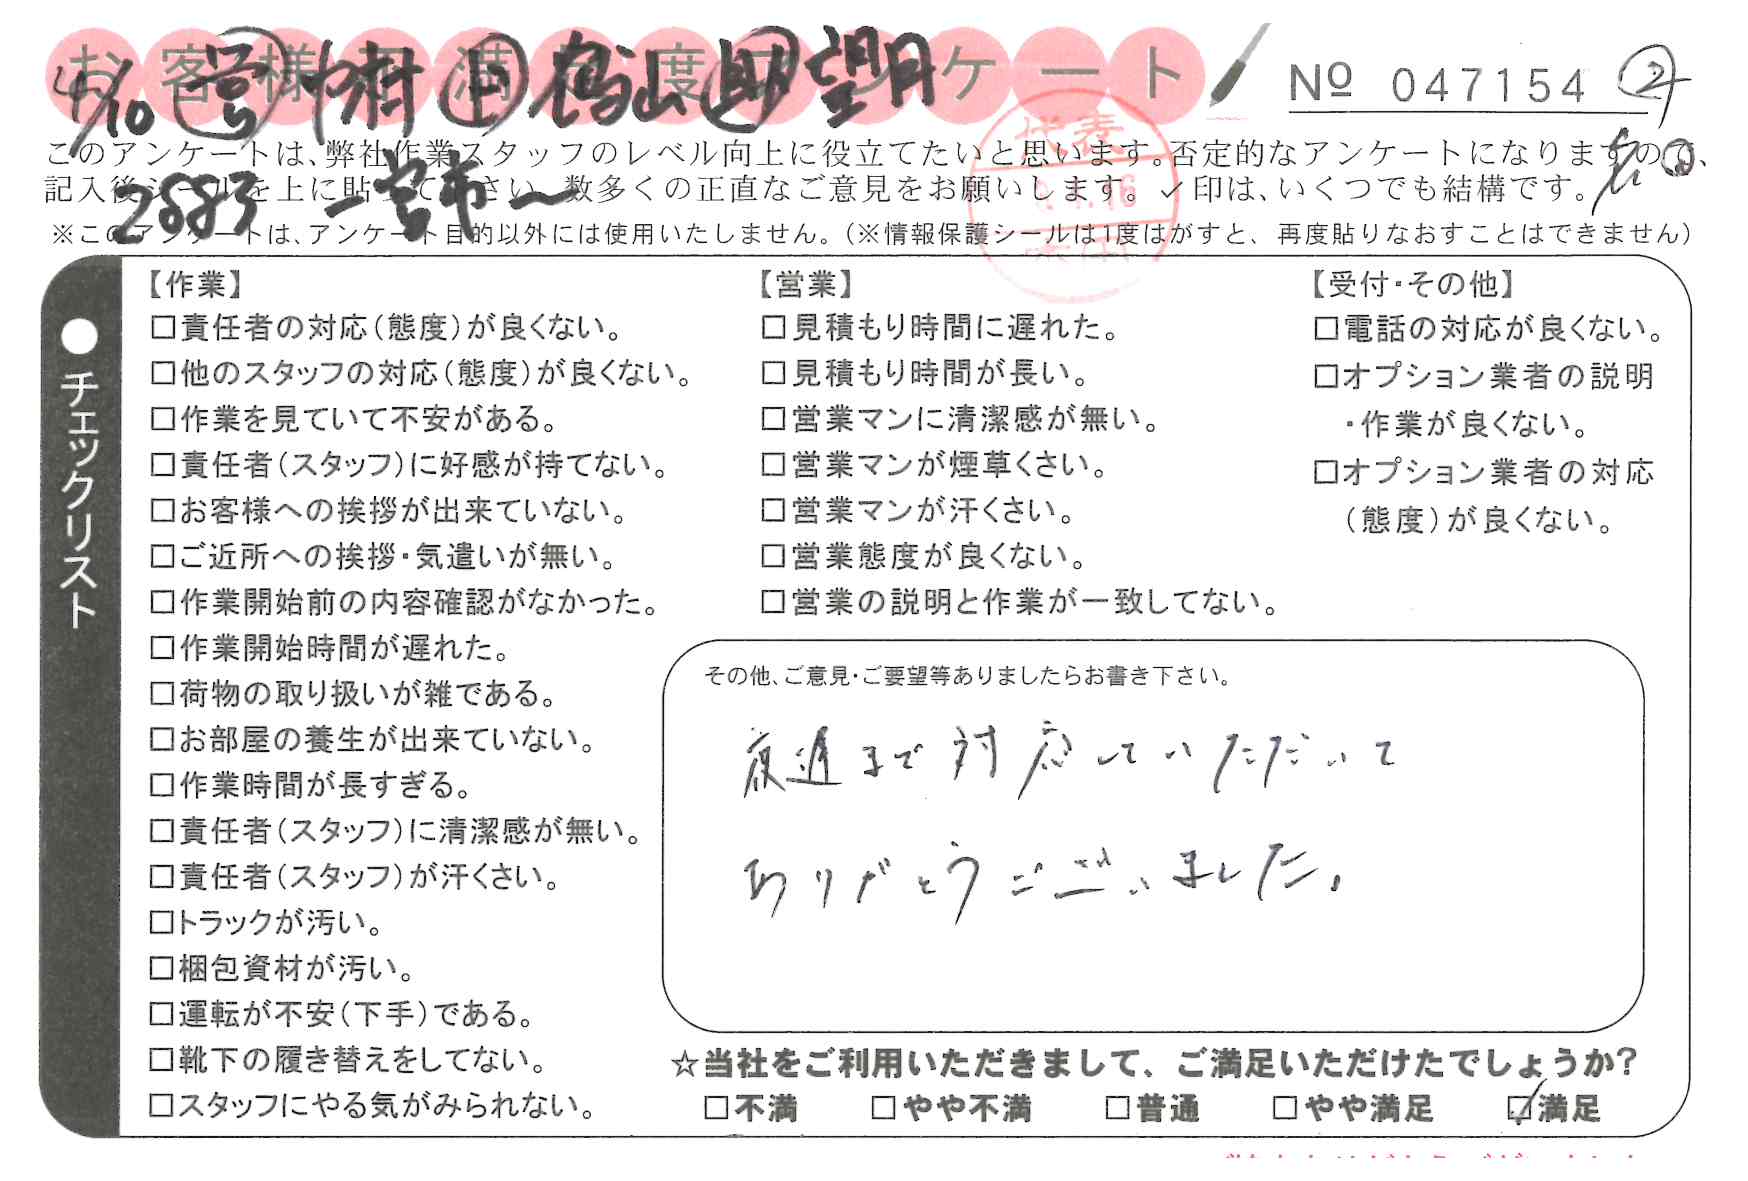 お客様満足度アンケート
No 047154 ②
4/10 営 中府 作 鶴山 助 望月
このアンケートは、弊社作業スタッフのレベル向上に役立てたいと思います。否定的なアンケートになりますので、
記入後シールを上に貼って下さい。数多くの正直なご意見をお願いします。✓印は、いくつでも結構です。
2883 一宮市〜
※このアンケートは、アンケート目的以外には使用いたしません。(※情報保護シールは1度はがすと、再度貼りなおすことはできません)
代表
●チェックリスト
【作業】
□責任者の対応(態度)が良くない。
□他のスタッフの対応(態度)が良くない。
□作業を見ていて不安がある。
□責任者(スタッフ)に好感が持てない。
□お客様への挨拶が出来ていない。
□ご近所への挨拶・気遣いが無い。
□作業開始前の内容確認がなかった。
□作業開始時間が遅れた。
□荷物の取り扱いが雑である。
□お部屋の養生が出来ていない。
□作業時間が長すぎる。
□責任者(スタッフ)に清潔感が無い。
□責任者(スタッフ)が汗くさい。
□トラックが汚い。
□梱包資材が汚い。
□運転が不安(下手)である。
□靴下の履き替えをしてない。
□スタッフにやる気がみられない。
【営業】
□見積もり時間に遅れた。
□見積もり時間が長い。
□営業マンに清潔感が無い。
□営業マンが煙草くさい。
□営業マンが汗くさい。
□営業態度が良くない。
□営業の説明と作業が一致してない。
【受付・その他】
□電話の対応が良くない。
□オプション業者の説明
・作業が良くない。
□オプション業者の対応
(態度)が良くない。
その他、ご意見・ご要望等ありましたらお書き下さい。
夜遅まで対応していただいて
ありがとうございました。
☆当社をご利用いただきまして、ご満足いただけたでしょうか?
□不満 □やや不満 □普通 □やや満足 ☑満足